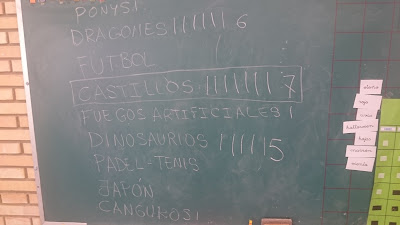 PONYS I
DRAGONES IIIIII 6
FUTBOL
CASTILLOS IIIIIII 7
FUEGOS ARTIFICIALES I
DINOSAURIOS IIIII 5
PADEL-TENIS
JAPÓN
CANGUROS I
otoño
rojo
hojas